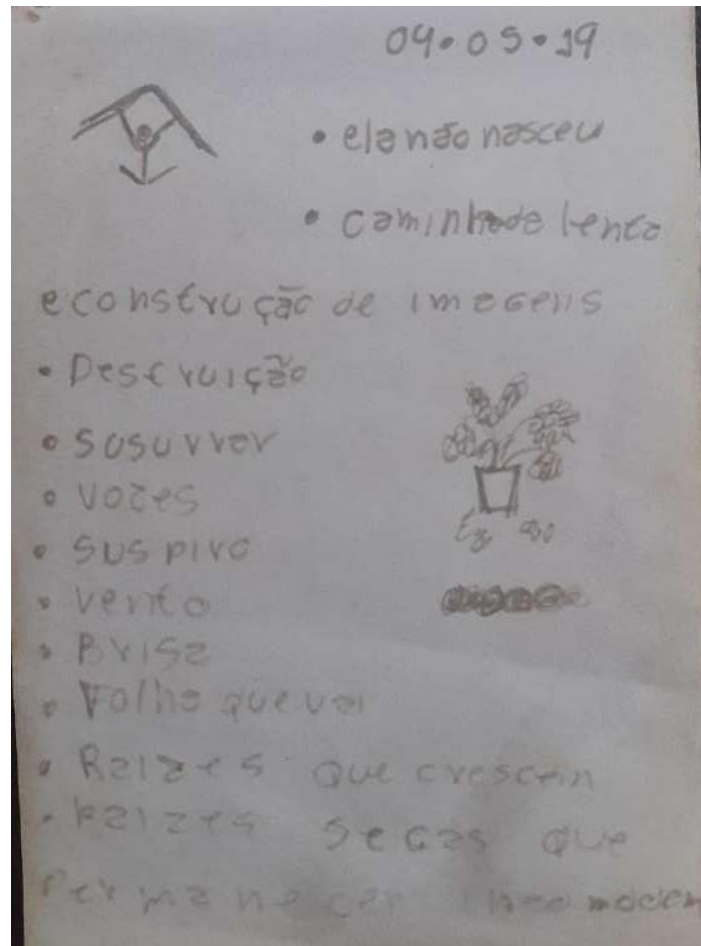 04.05.19
• ela não nasceu
• caminhada lenta
e construção de imagens
• Destruição
• Susurrar
• Vozes
• Suspiro
• Vento
• Brisa
• Folha que vai
• Raizes que crescem
• Raizes secas que
permanecem